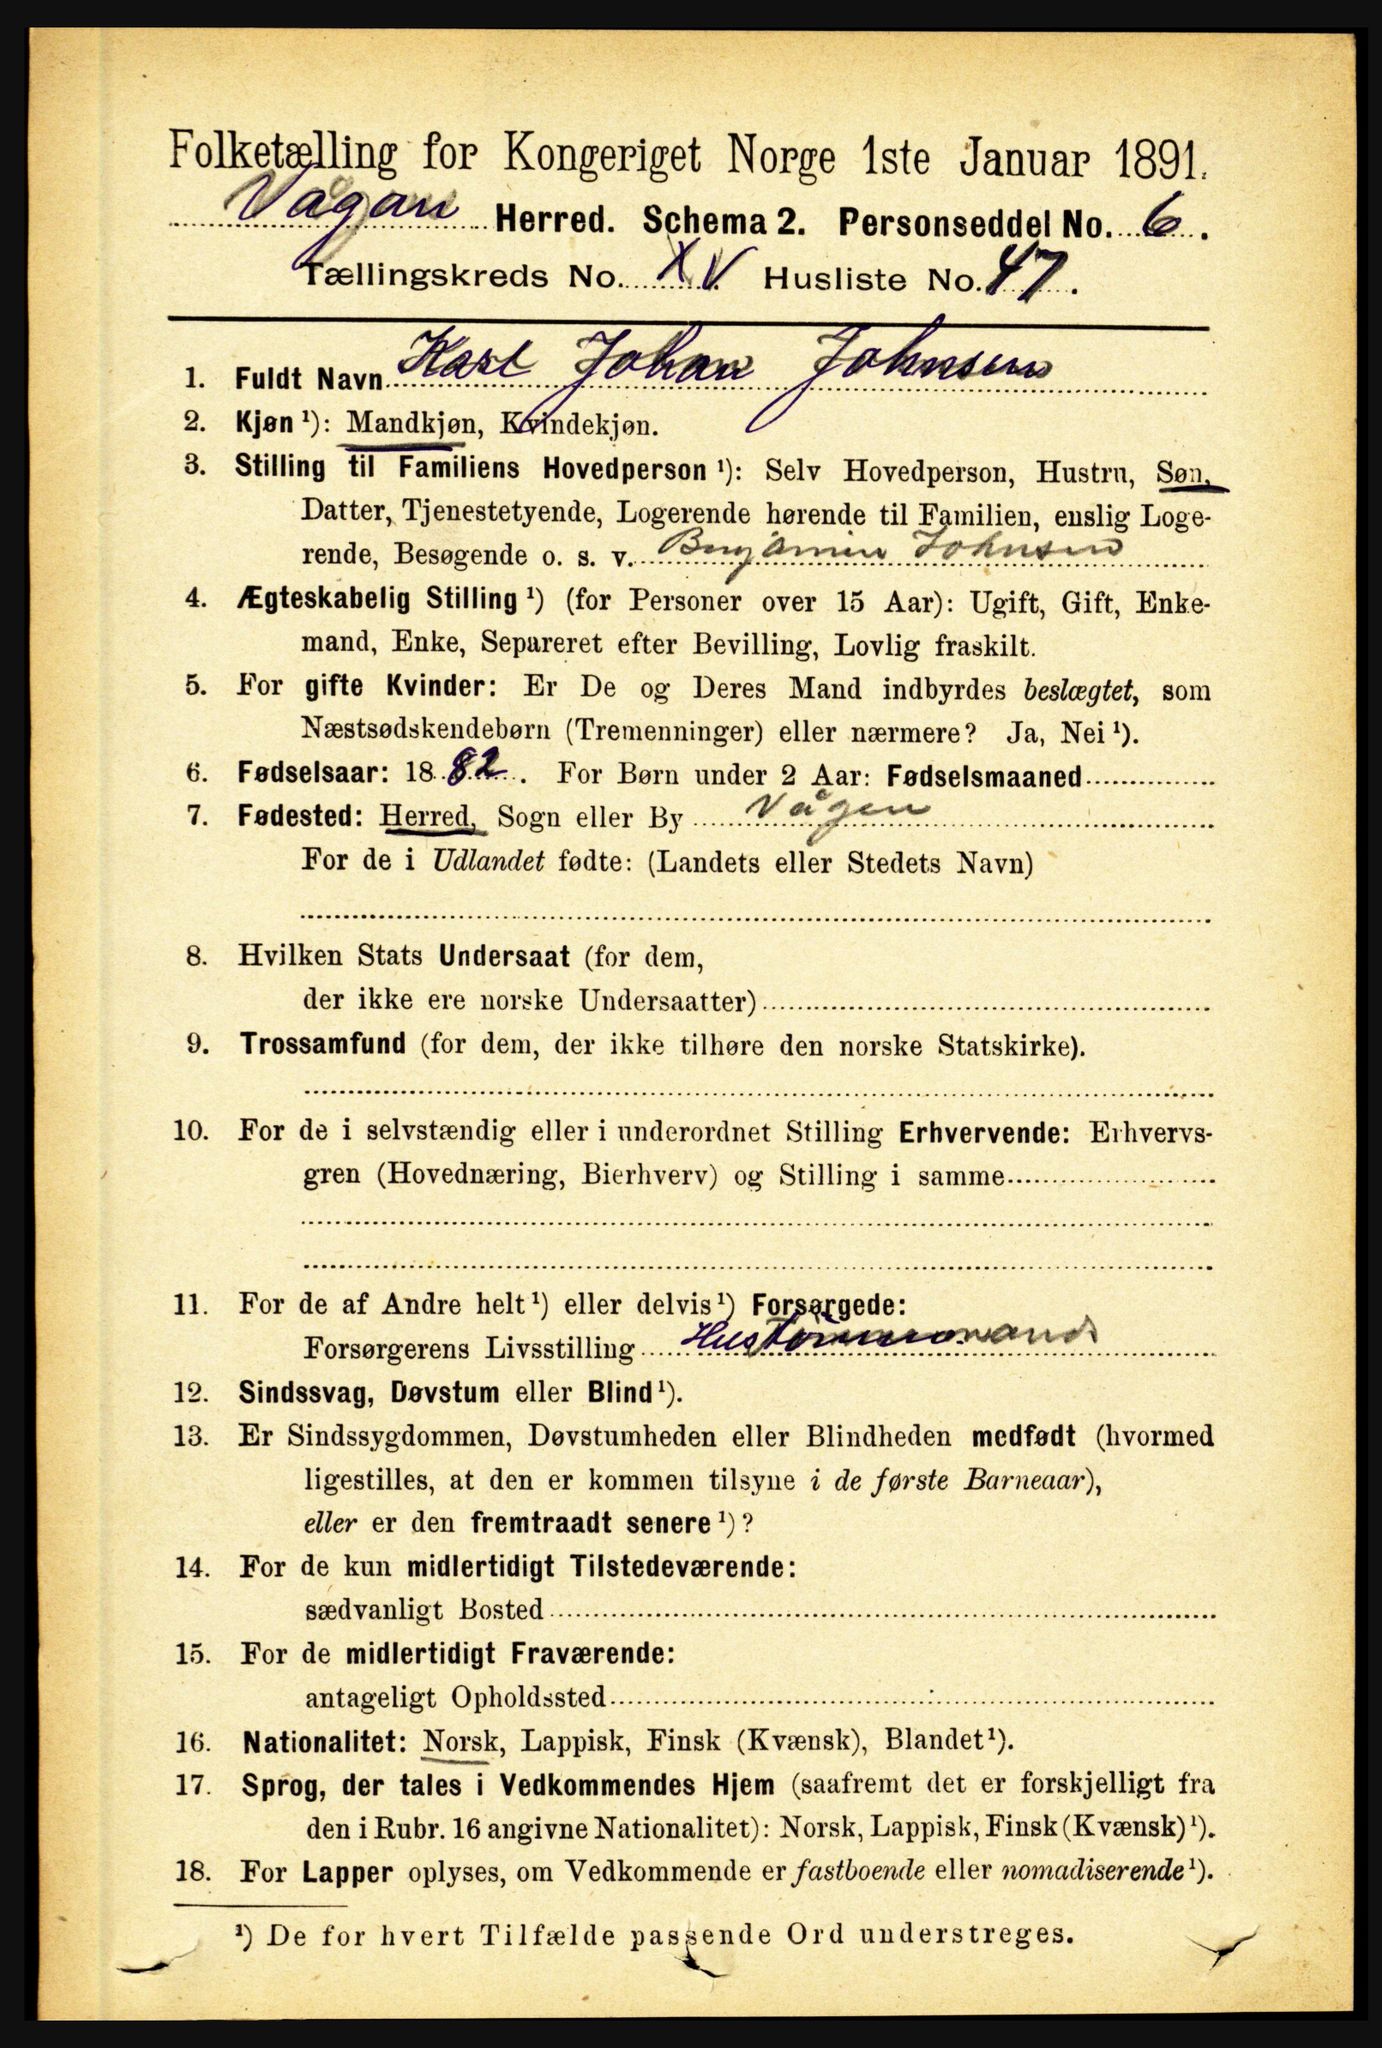 Folketælling for Kongeriget Norge 1ste Januar 1891.
Vågan Herred. Schema 2. Personseddel No. 6.
Tællingskreds No. XV Husliste No. 47.
1. Fuldt Navn Karl Johan Johnsen
2. Kjøn ¹): Mandkjøn, Kvindekjøn.
3. Stilling til Familiens Hovedperson ¹): Selv Hovedperson, Hustru, Søn,
Datter, Tjenestetyende, Logerende hørende til Familien, enslig Loge-
rende, Besøgende o. s. v. Benjamin Johnsen
4. Ægteskabelig Stilling ¹) (for Personer over 15 Aar): Ugift, Gift, Enke-
mand, Enke, Separeret efter Bevilling, Lovlig fraskilt.
5. For gifte Kvinder: Er De og Deres Mand indbyrdes beslægtet, som
Næstsødskendebørn (Tremenninger) eller nærmere? Ja, Nei ¹).
6. Fødselsaar: 1882. For Børn under 2 Aar: Fødselsmaaned
7. Fødested: Herred, Sogn eller By Vågen
For de i Udlandet fødte: (Landets eller Stedets Navn)
8. Hvilken Stats Undersaat (for dem,
der ikke ere norske Undersaatter)
9. Trossamfund (for dem, der ikke tilhøre den norske Statskirke).
10. For de i selvstændig eller i underordnet Stilling Erhvervende: Erhvervs-
gren (Hovednæring, Bierhverv) og Stilling i samme
11. For de af Andre helt ¹) eller delvis ¹) Forsørgede:
Forsørgerens Livsstilling Hustømmermand
12. Sindssvag, Døvstum eller Blind ¹).
13. Er Sindssygdommen, Døvstumheden eller Blindheden medfødt (hvormed
ligestilles, at den er kommen tilsyne i de første Barneaar),
eller er den fremtraadt senere ¹)?
14. For de kun midlertidigt Tilstedeværende:
sædvanligt Bosted
15. For de midlertidigt Fraværende:
antageligt Opholdssted
16. Nationalitet: Norsk, Lappisk, Finsk (Kvænsk), Blandet ¹).
17. Sprog, der tales i Vedkommendes Hjem (saafremt det er forskjelligt fra
den i Rubr. 16 angivne Nationalitet): Norsk, Lappisk, Finsk (Kvænsk) ¹).
18. For Lapper oplyses, om Vedkommende er fastboende eller nomadiserende ¹).
¹) De for hvert Tilfælde passende Ord understreges.